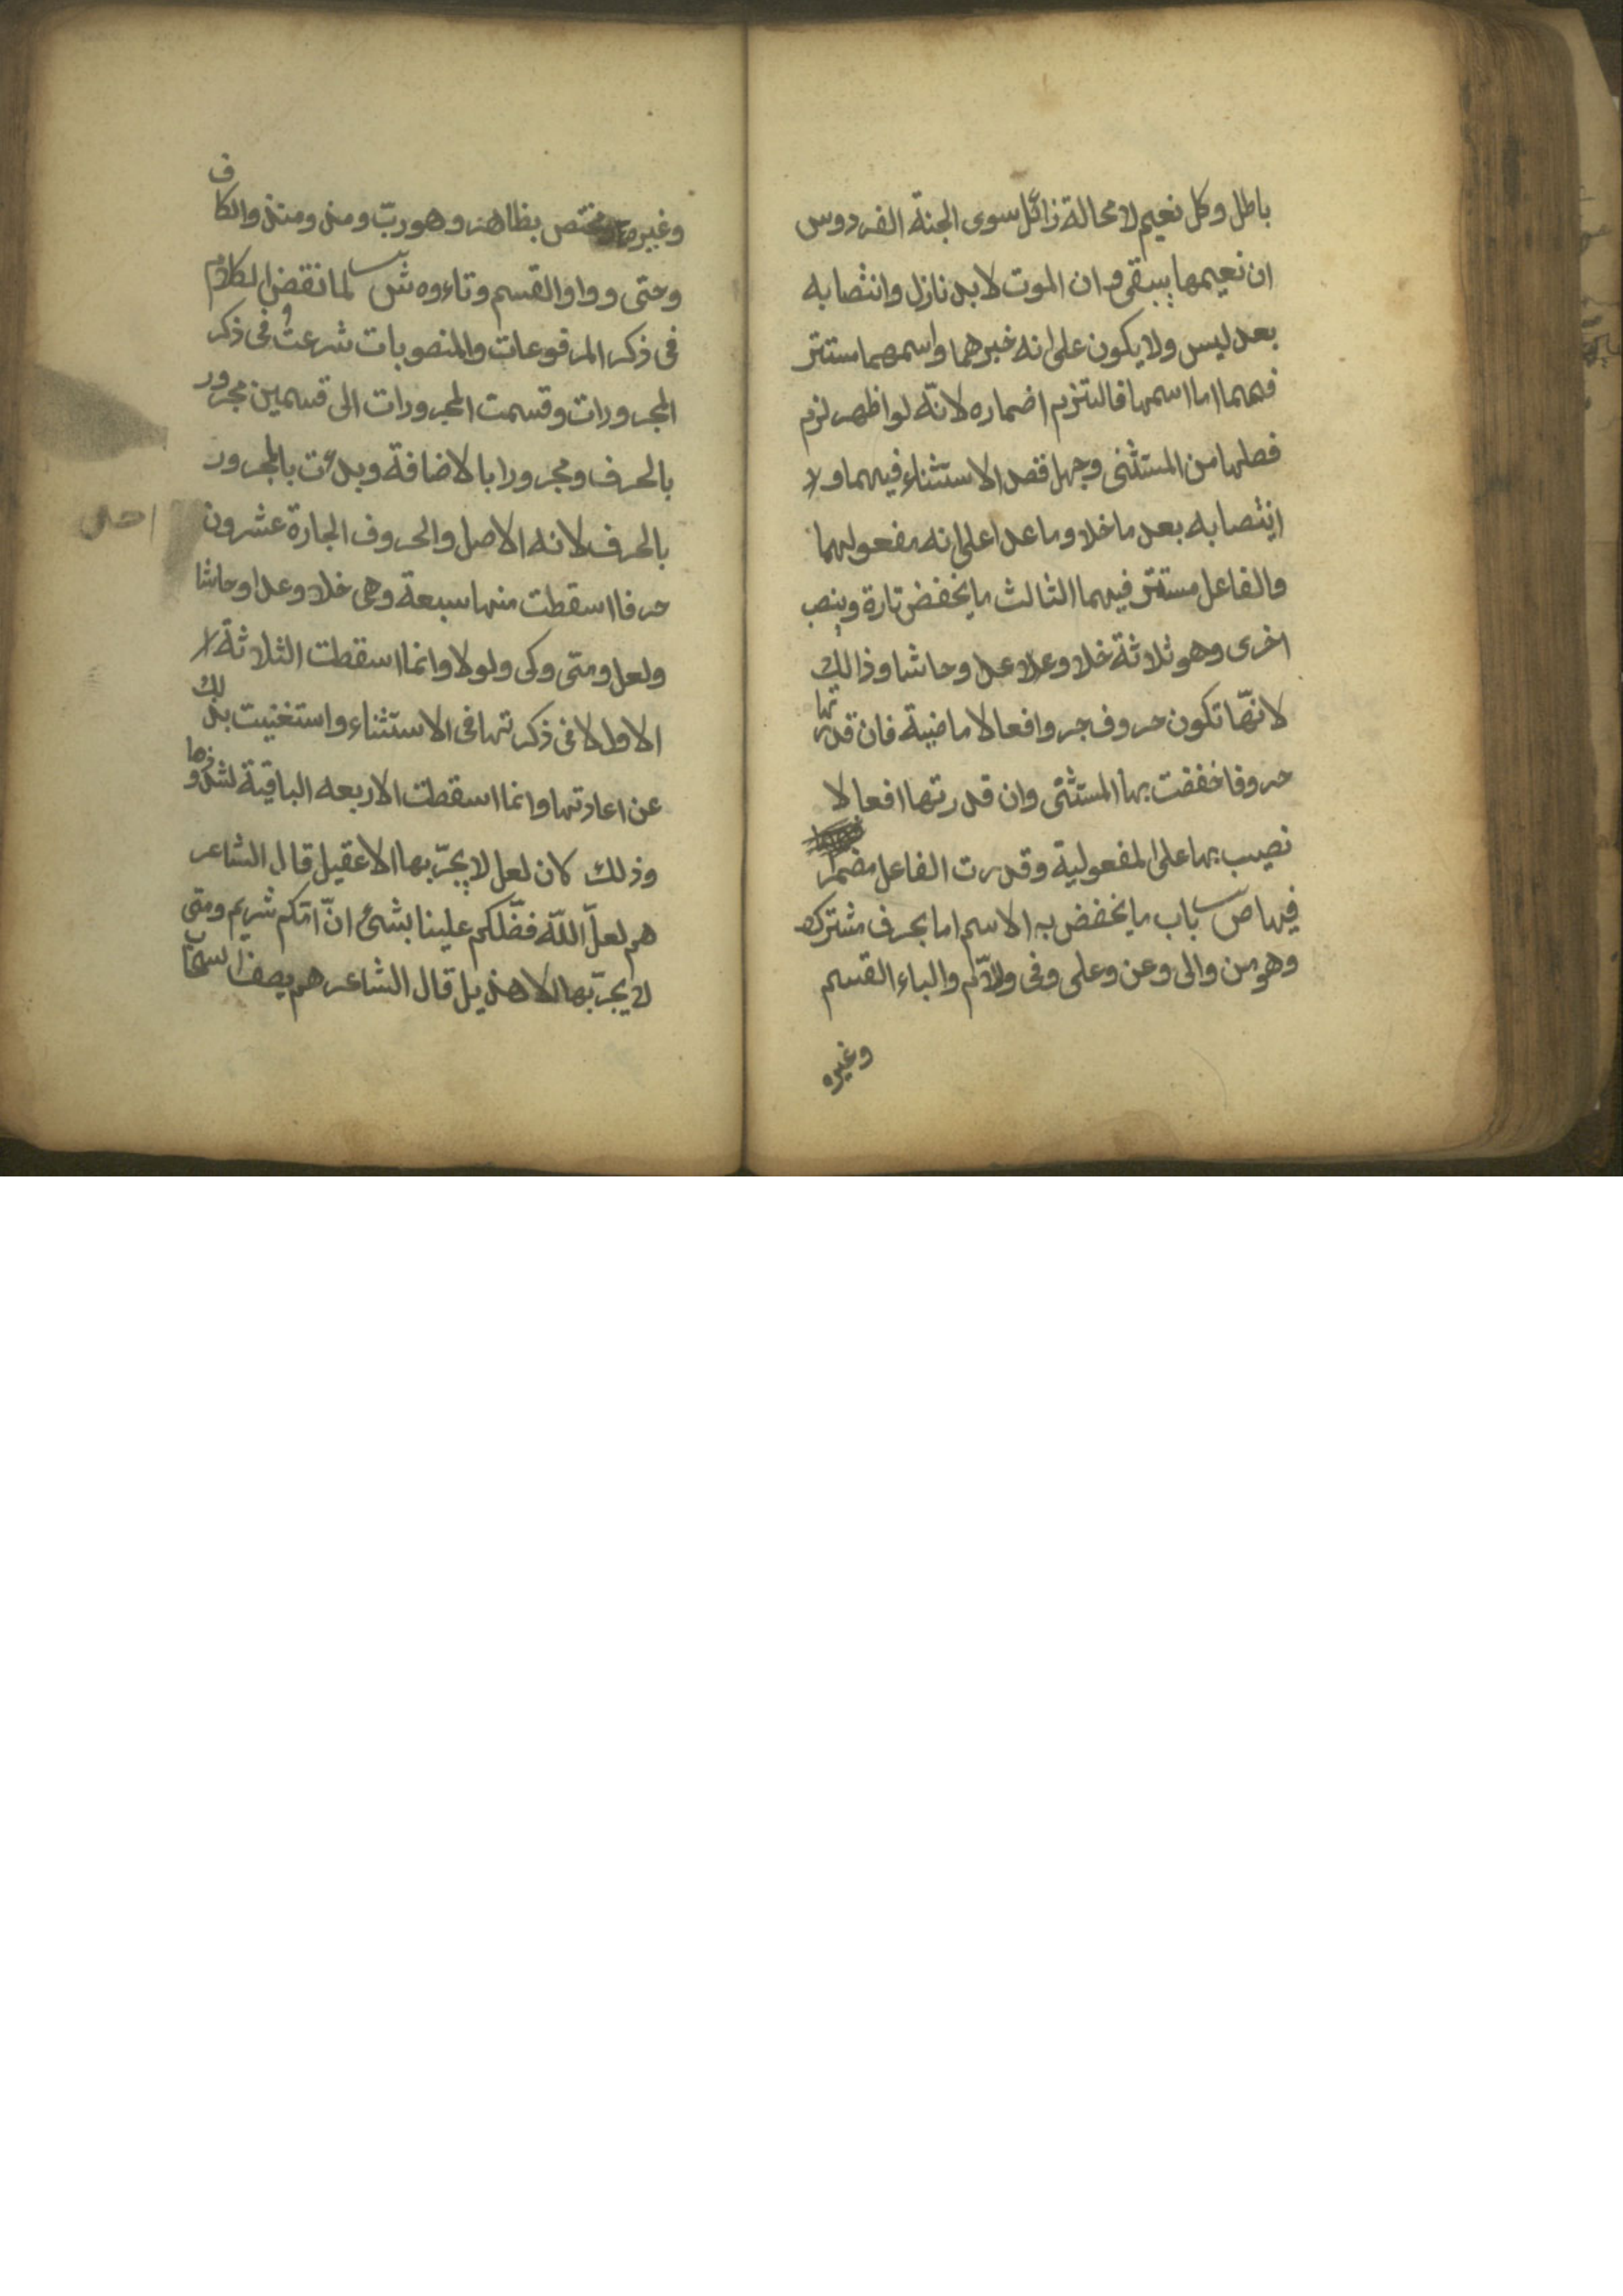 باطل وكل نعيم لا محالة زائل سوى الجنة الفردوس
ان نعيمها يبقى وان الموت لا بد نازل وانتصابه
بعد ليس ولا يكون على انه خبرهما واسمهما مستتر
فيهما اما اسمها فالتزم اضماره لانه لو اظهر لزم
فصلها من المستثنى وجهل قصد الاستثناء فيهما ولا
انتصابه بعد ما خلا وما عدا على انه مفعولهما
والفاعل مستتر فيهما الثالث ما يخفض تارة وينصب
اخرى وهو ثلاثة خلا وعدا وحاشا وذالك
لانها تكون حروف جر وافعالا ماضية فان قدرتها
حروفا خفضت بها المستثنى وان قدرتها افعالا
نصبت بها على المفعولية وقدرت الفاعل مضمرا
فيها ص باب ما يخفض به الاسم اما بحرف مشترك
وهو من والى وعن وعلى وفى واللام والباء القسم
وغيره
وغيره مختص بظاهر وهو رب ومذ ومنذ والكاف
وحتى وواو القسم وتاءوه ش لما نقضى الكلام
فى ذكر المرفوعات والمنصوبات شرعت فى ذكر
المجرورات وقسمت المجرورات الى قسمين مجرور
بالحرف ومجرورا بالاضافة وبدءت بالمجرور
بالحرف لانه الاصل والحروف الجارة عشرون
حرفا اسقطت منها سبعة وهى خلا وعدا وحاشا
ولعل ومتى وكى ولولا وانما اسقطت الثلاثة لا
الاول لانى ذكرتها فى الاستثناء واستغنيت بذلك
عن اعادتها وانما اسقطت الاربعه الباقية لشذوذها
وذلك كان لعل لا يجرّ بها الا عقيل قال الشاعر
هم لعلّ اللّه فضّلكم علينا بشئ انّ امّكم شريم ومتى
لا يجرّ بها الا هذيل قال الشاعر هم يصف السحاب